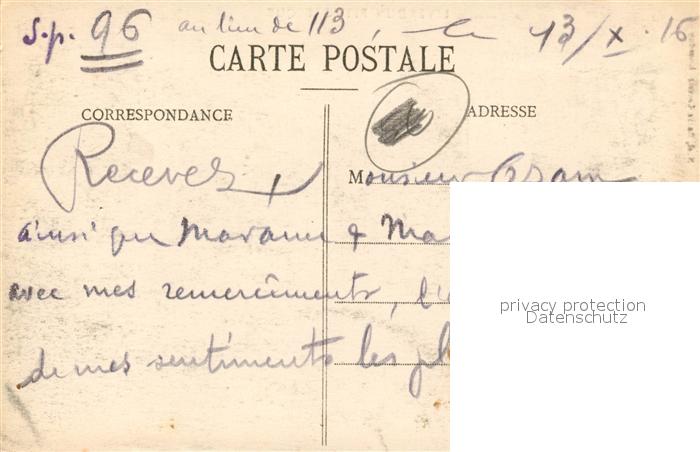 S.p. 96 au lieu de 113, le 13/X.16
CARTE POSTALE
CORRESPONDANCE
ADRESSE
Recevez
Monsieur
ainsi que Madame & Ma
avec mes remerciements, l'
privacy protection
Datenschutz
de mes sentiments les pl